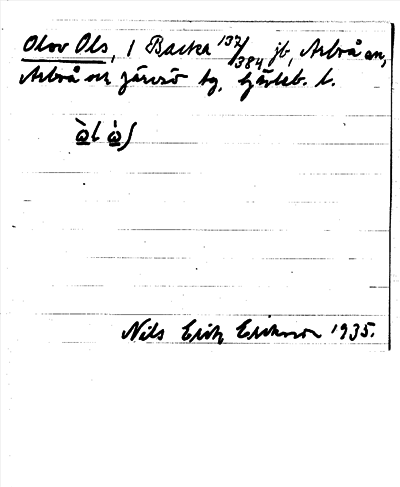 Olov Ols, i Backa 137/384 jb, Arbrå sn,
Arbrå och Järvsö tg, Gävleb. l.
Nils Erik Eriksson 1935.